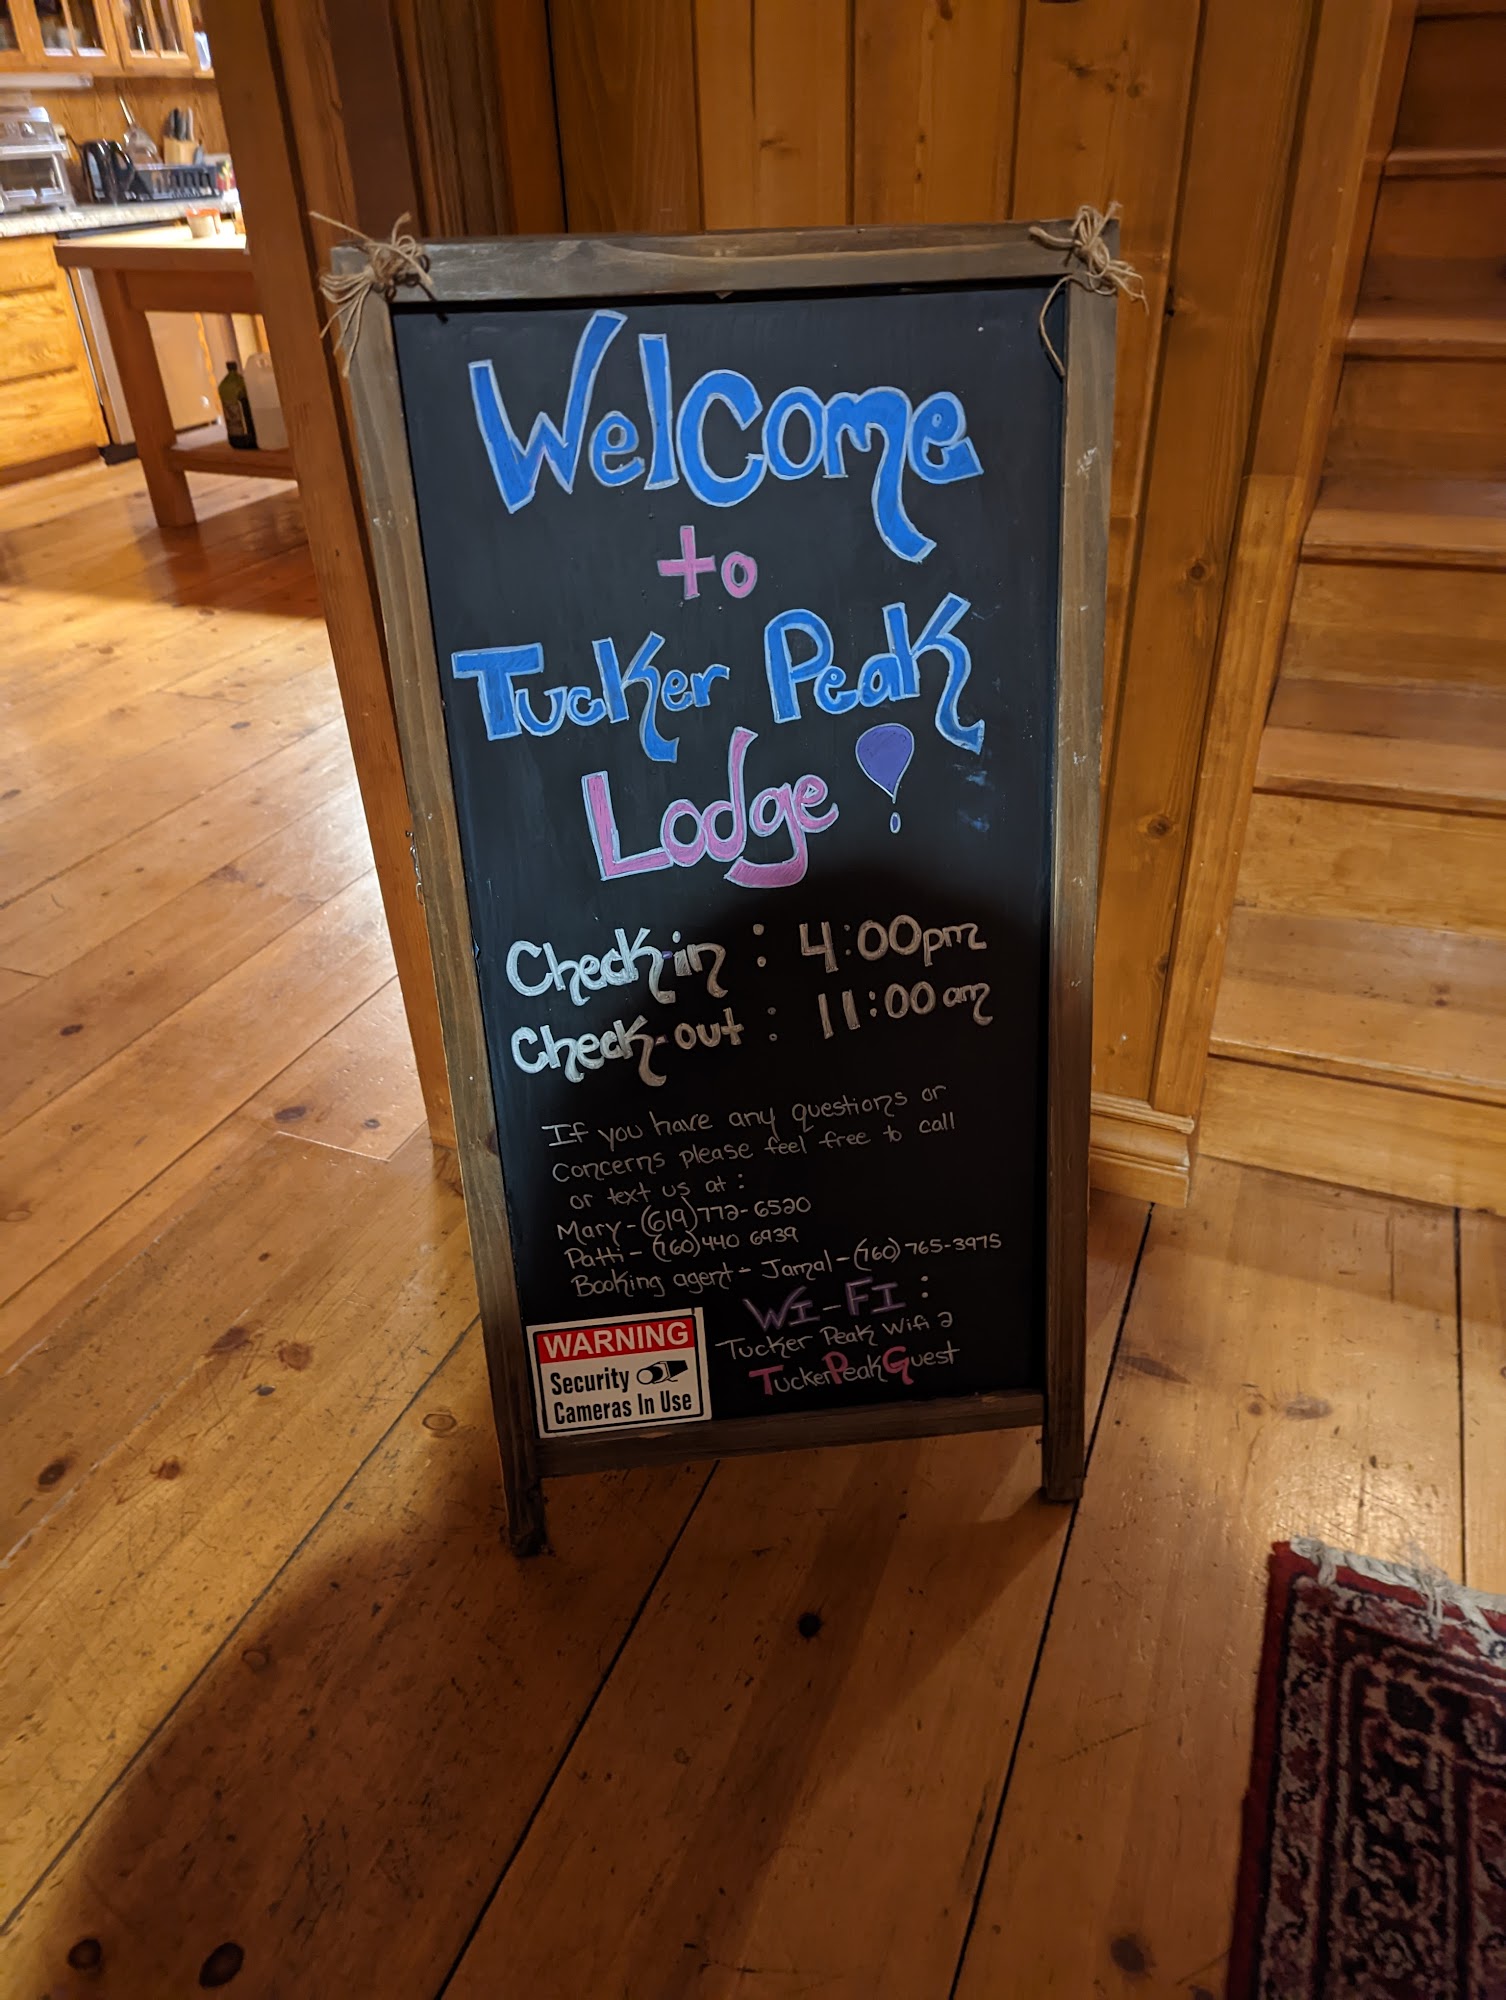 Welcome
to
Tucker Peak
Lodge!
Check-in : 4:00pm
Check-out : 11:00am
If you have any questions or
concerns please feel free to call
or text us at:
Mary-(619)772-6520
Patti-(760)440 6939
Booking agent- Jamal-(760)765-3975
WI-FI:
Tucker Peak Wifi 2
TuckerPeakGuest
WARNING
Security
Cameras In Use